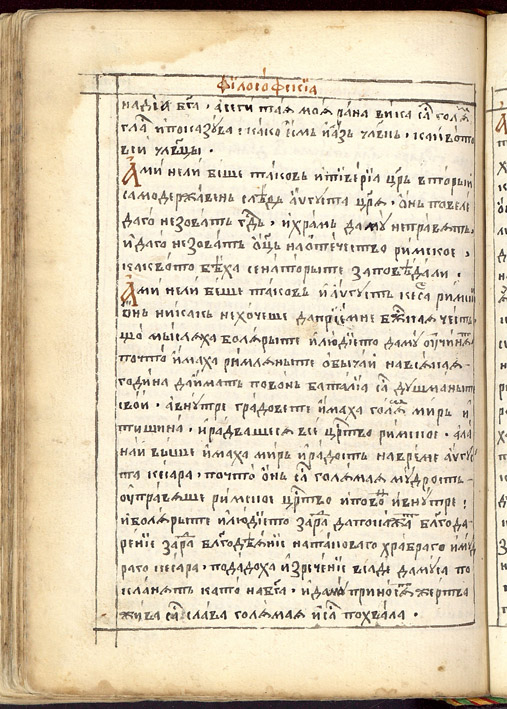 Філософскіа
надеи бг҃а · а сеги таѧ моѧ рана вика са голѧ
гла и показꙋва · како есмь и азъ чл҃вкь · какво то
вси чл҃вцы ·
Ами нели беше таковь и тіверіа цр҃ь вторый
самодержавень следь аѵгꙋста цр҃ѧ · онь повеле
да го незовать гд҃ь · и храмь да мꙋ неправѧть
и да го незовать ѻц҃ь на ѻтечество римское ·
каквото беха сенаторыте заповедали ·
Ами нели беше таковь и аѵгꙋсть кеса римскі
онь никакь не хочеше да пріемне бж҃наѧ честь
що мыслѧха болѧрыте и людіето да мꙋ ꙋчинѧ
почто имаха римлѧныте обычаи на всѧкаѧ
година да имать по вонь баталіа са дꙋшманыте
свои · а внꙋтре градовете имаха голѧ мирь и
тишина · и радващесѧ все цр҃тво римское · ала
наи выше имаха мирь и радость на време аѵгꙋс
та кесара · почто онь са голѧмаѧ мꙋдрость
ꙋправѧше римское цр҃тво и по во и внꙋтре :
и болѧрыте и людіето зара да покажа благода
реніе зара благодеѧніе на таковаго храбраго и мꙋд
раго кесара · подадоха изреченіе всꙋде да мꙋ са по
кланѧть като на бг҃а · и да мꙋ приносѧ жертва
жива са слава голѧмаѧ и са похвала ·